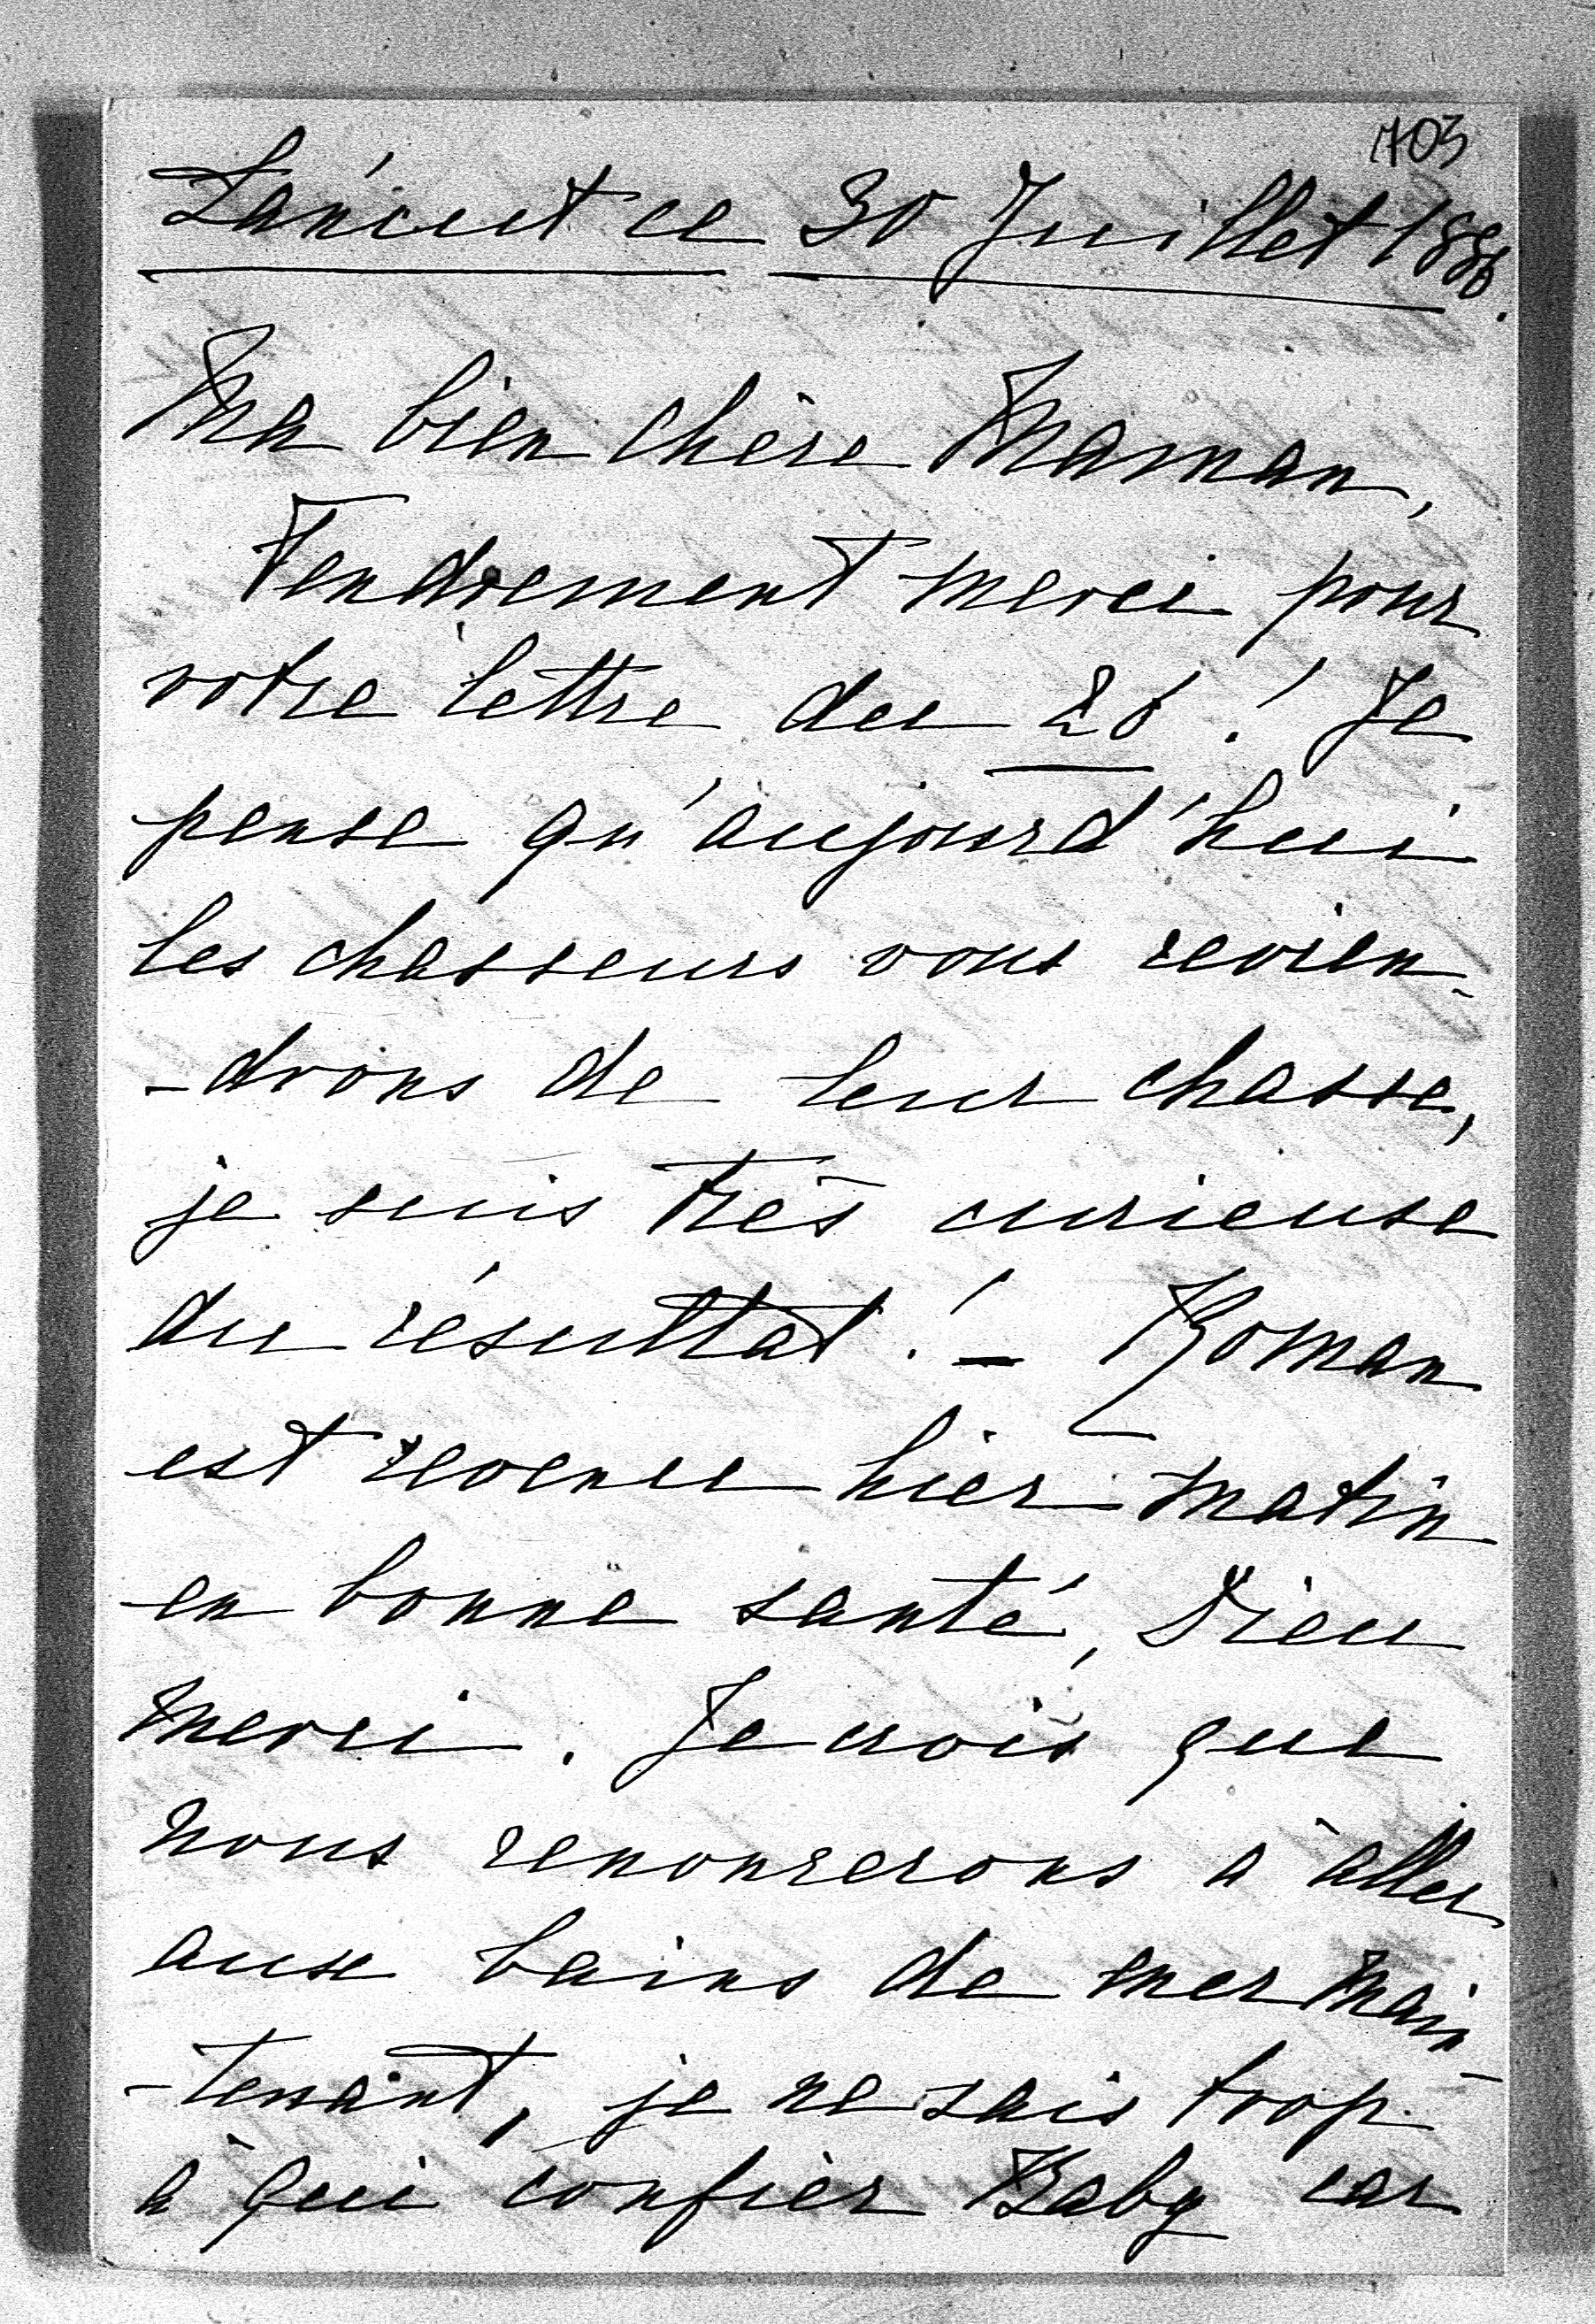 703
Łańcut ce 30 Juillet 1886.
Ma bien chère Maman,
Tendrement merci pour
votre lettre du 26! Je
pense qu'aujourd'hui
les chasseurs vous revien-
-drons de leur chasse,
je suis très curieuse
du résultat! – Roman
est revenu hier matin
en bonne santé, Dieu
merci. Je crois que
nous renonrerons à aller
aux bains de mer main-
-tenant, je ne sais trop
à qui confier Baby car